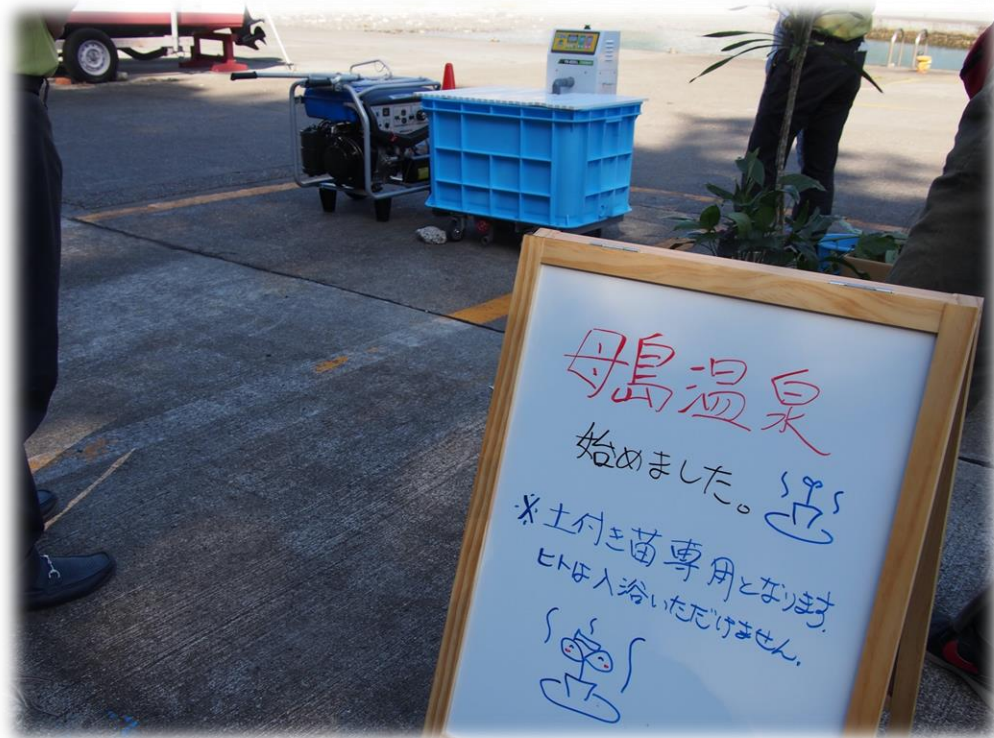 母島温泉
始めました。
※土付き苗専用となります。
ヒトは入浴いただけません。